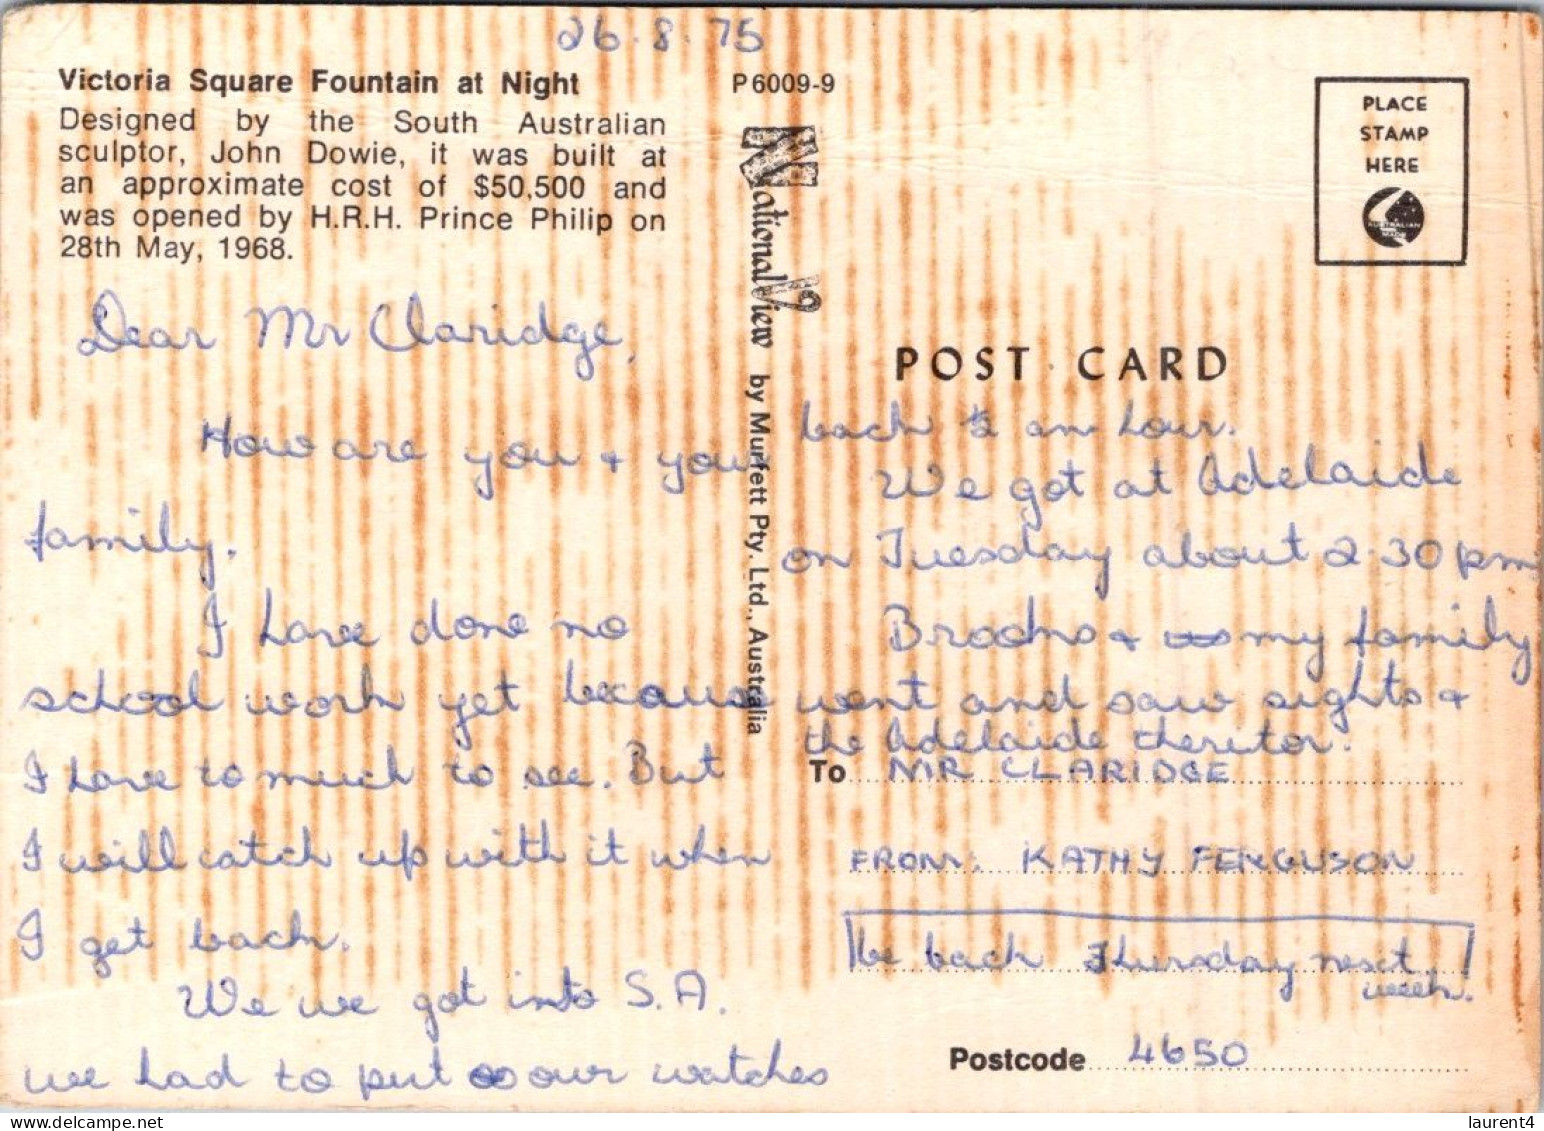 26.8.75
Victoria Square Fountain at Night
Designed by the South Australian
sculptor, John Dowie, it was built at
an approximate cost of $50,500 and
was opened by H.R.H. Prince Philip on
28th May, 1968.
Dear Mr Claridge,
How are you + your
family.
I have done no
school work yet because
I have to much to see. But
I will catch up with it when
I get back.
We we got into S.A.
we had to put our watches
P6009-9
National View by Murfett Pty. Ltd., Australia
PLACE
STAMP
HERE
AUSTRALIAN
MADE
POST CARD
back ½ an hour.
We got at Adelaide
on Tuesday about 2.30pm
+ my family
went and saw sights +
the Adelaide theritor.
To MR CLARIDGE
FROM: KATHY FERGUSON
be back Thursday next
week.
Postcode 4650
laurent4